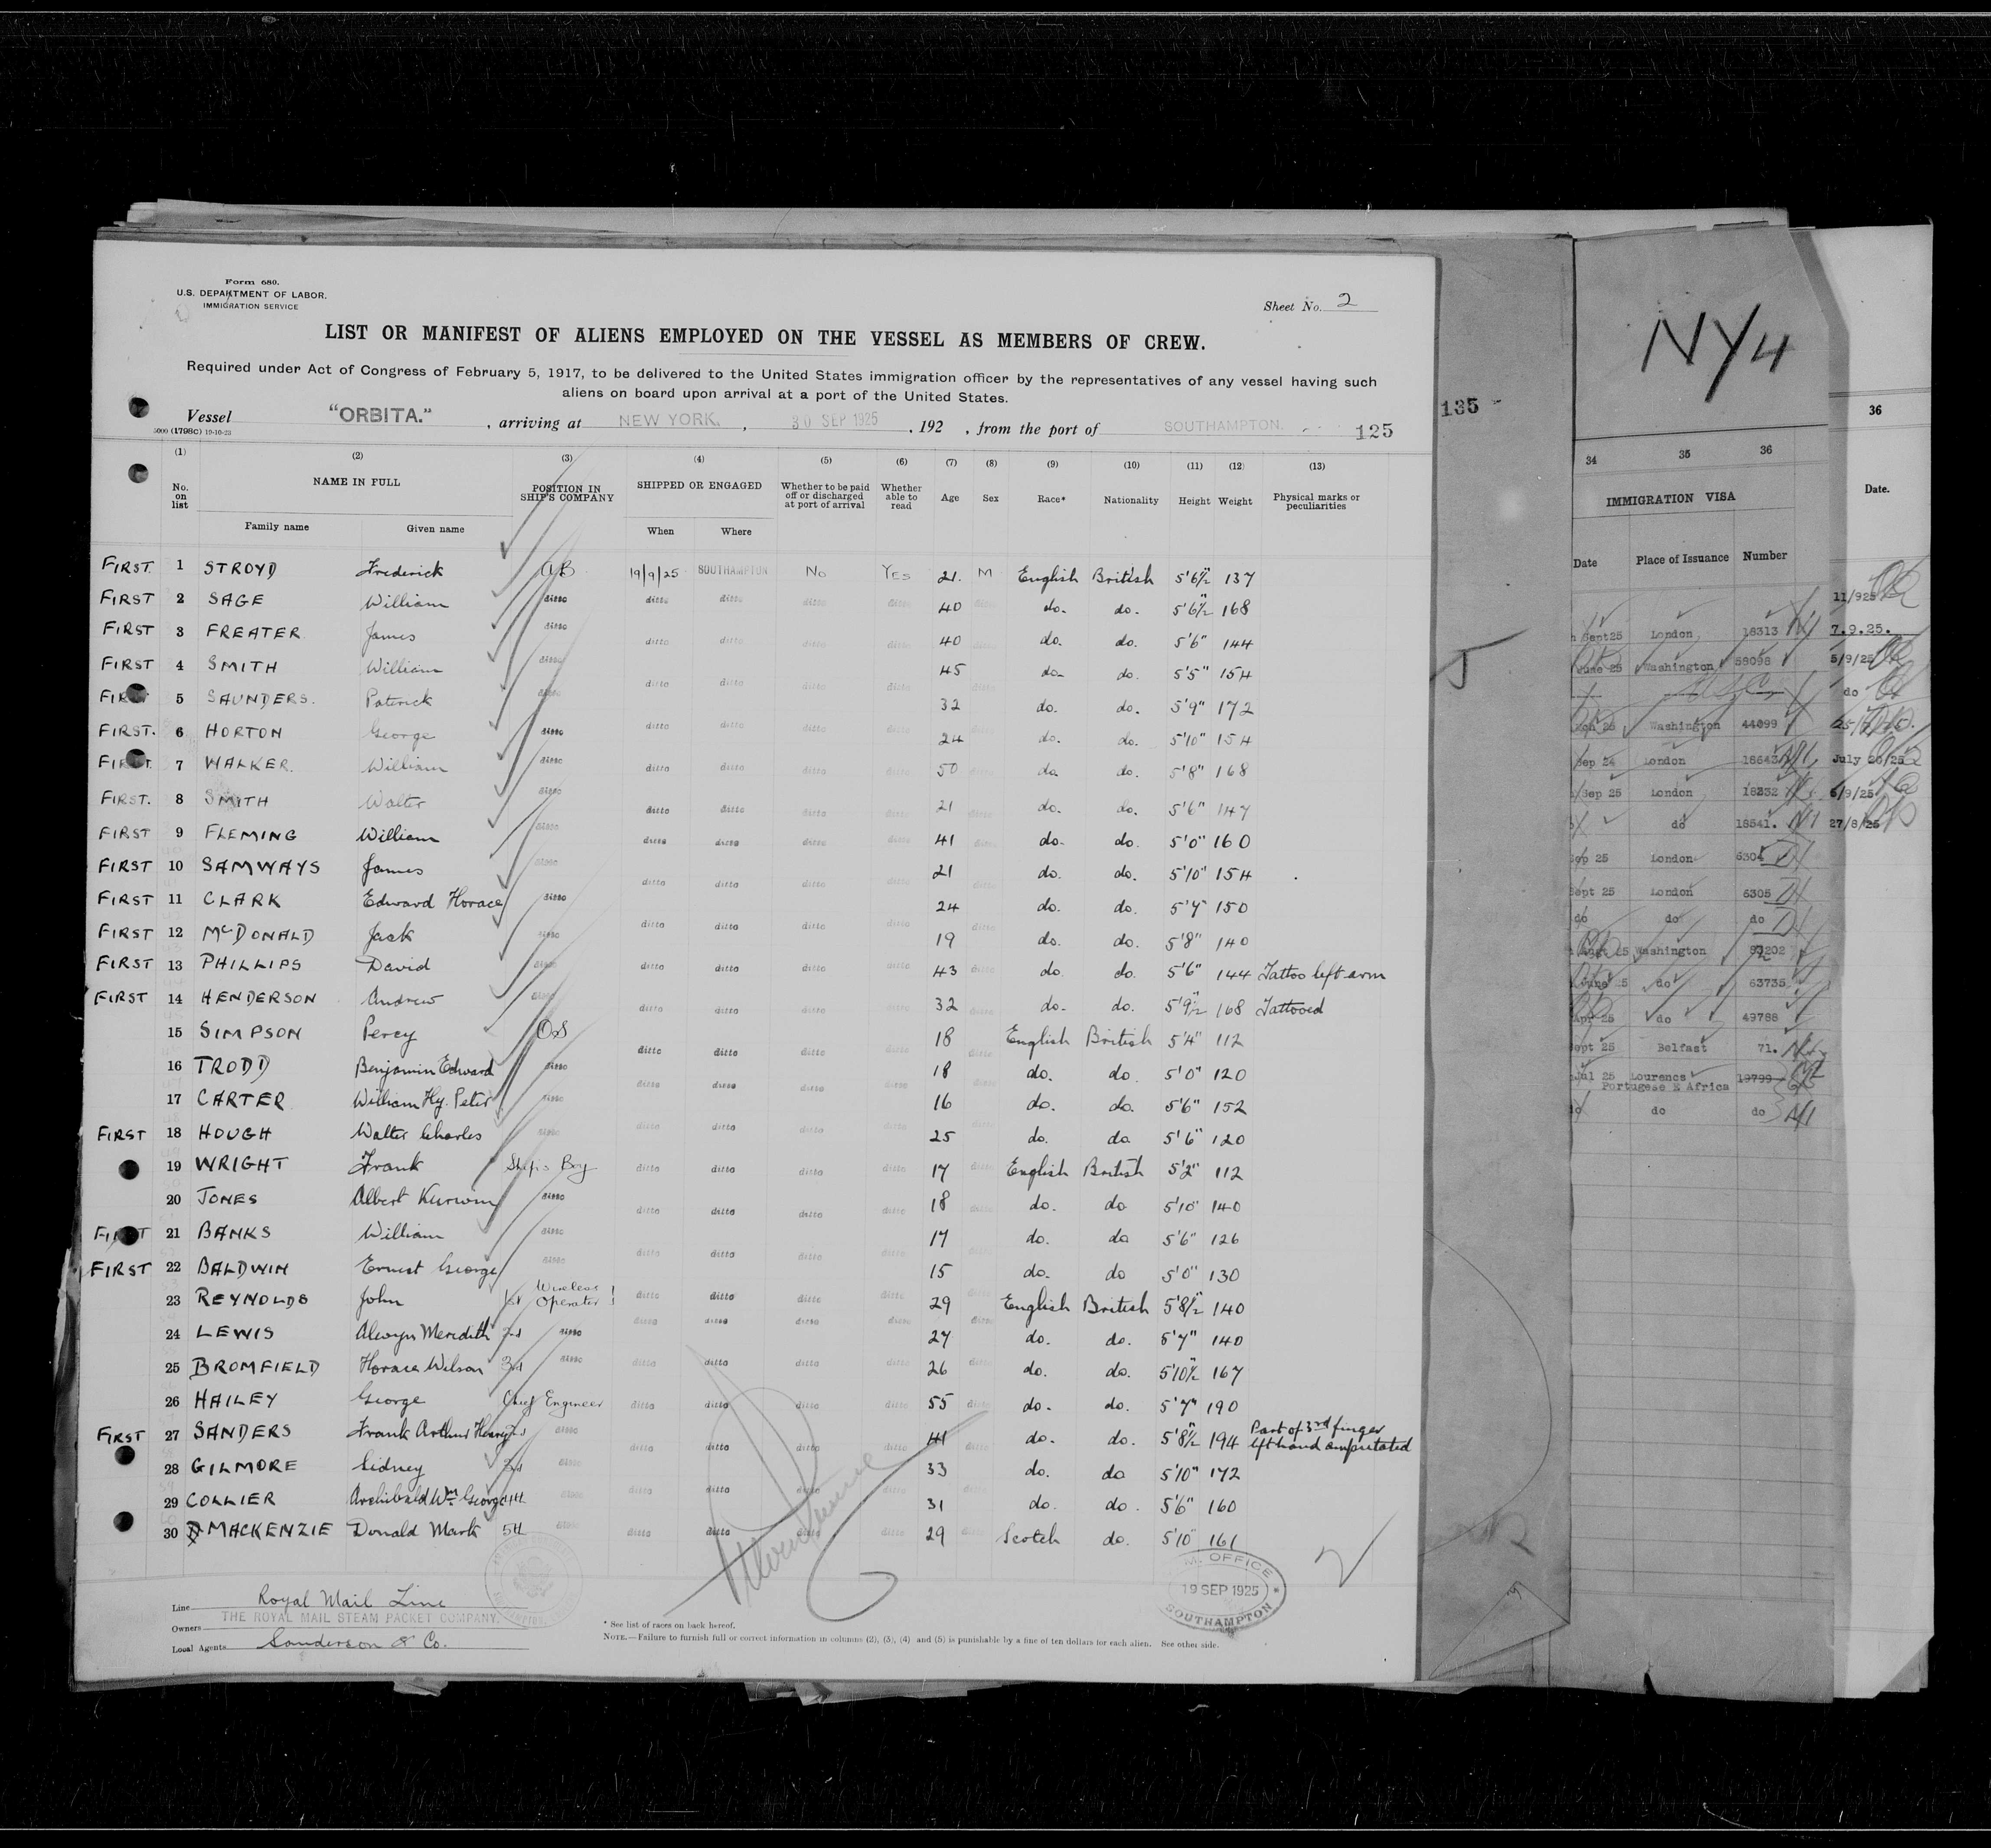 Form 680.
U.S. DEPARTMENT OF LABOR.
IMMIGRATION SERVICE
Sheet No. 2
LIST OR MANIFEST OF ALIENS EMPLOYED ON THE VESSEL AS MEMBERS OF CREW.
Required under Act of Congress of February 5, 1917, to be delivered to the United States immigration officer by the representatives of any vessel having such
aliens on board upon arrival at a port of the United States.
Vessel "ORBITA." , arriving at NEW YORK. , 30 SEP 1925 , 192 , from the port of SOUTHAMPTON. 125
5000 (1798C) 19-10-23
(1) (2) (3) (4) (5) (6) (7) (8) (9) (10) (11) (12) (13)
No. on list NAME IN FULL POSITION IN SHIP'S COMPANY SHIPPED OR ENGAGED Whether to be paid off or discharged at port of arrival Whether able to read Age Sex Race* Nationality Height Weight Physical marks or peculiarities
Family name Given name When Where
FIRST. 1 STROYD Frederick AB 19/9/25 SOUTHAMPTON No YES 21. M English British 5'6½" 137
FIRST 2 SAGE William ditto ditto ditto ditto ditto 40 ditto do. do. 5'6½" 168
FIRST 3 FREATER James ditto ditto ditto ditto ditto 40 ditto do. do. 5'6" 144
FIRST 4 SMITH William ditto ditto ditto ditto ditto 45 ditto do. do. 5'5" 154
FIRST 5 SAUNDERS. Paterick ditto 32 do. do. 5'9" 172
FIRST. 6 HORTON George ditto ditto ditto ditto ditto 24 ditto do. do. 5'10" 154
FIRST. 7 WALKER. William ditto ditto ditto ditto ditto 50 ditto do. do. 5'8" 168
FIRST. 8 SMITH Walter ditto ditto ditto ditto ditto 21 ditto do. do. 5'6" 147
FIRST 9 FLEMING William ditto ditto ditto ditto ditto 41 ditto do. do. 5'0" 160
FIRST 10 SAMWAYS James ditto ditto ditto ditto ditto 21 ditto do. do. 5'10" 154
FIRST 11 CLARK Edward Horace ditto 24 do. do. 5'7" 150
FIRST 12 McDONALD Jack ditto ditto ditto ditto ditto 19 ditto do. do. 5'8" 140
FIRST 13 PHILLIPS David ditto ditto ditto ditto ditto 43 ditto do. do. 5'6" 144 Tattoo left arm
FIRST 14 HENDERSON Andrew ditto ditto ditto ditto ditto 32 ditto do. do. 5'9½" 168 Tattooed
15 SIMPSON Percy OS ditto ditto ditto ditto 18 ditto English British 5'4" 112
16 TRODD Benjamin Edward ditto ditto ditto ditto ditto 18 ditto do. do. 5'0" 120
17 CARTER William Hy. Peter ditto 16 do. do. 5'6" 152
FIRST 18 HOUGH Walter Charles ditto ditto ditto ditto ditto 25 ditto do. do 5'6" 120
19 WRIGHT Frank Ship's Boy ditto ditto ditto ditto 17 ditto English British 5'2" 112
20 JONES Albert ditto ditto ditto ditto ditto 18 ditto do. do 5'10" 140
FIRST 21 BANKS William ditto 17 do. do 5'6" 126
FIRST 22 BALDWIN Ernest George ditto ditto ditto ditto ditto 15 ditto do. do 5'0" 130
23 REYNOLDS John 1st Wireless Operator ditto ditto ditto ditto 29 ditto English British 5'8½" 140
24 LEWIS Alwyn Meredith 2nd ditto ditto ditto ditto ditto 27 ditto do. do. 5'7" 140
25 BROMFIELD Horace Wilson 3rd ditto ditto ditto ditto ditto 26 ditto do. do. 5'10½" 167
26 HAILEY George Chief Engineer ditto ditto ditto ditto 55 ditto do. do. 5'7" 190
FIRST 27 SANDERS Frank Arthur Henry 2nd ditto ditto ditto ditto ditto 41 ditto do. do. 5'8½" 194 Part of 3rd finger left hand amputated
28 GILMORE Sidney 3rd ditto 33 do. do 5'10" 172
29 COLLIER Archibald Wm George 4th ditto ditto ditto ditto ditto 31 ditto do. do. 5'6" 160
30 MACKENZIE Donald Mark 5th ditto ditto ditto ditto ditto 29 ditto Scotch do. 5'10" 161
M. OFFICE
19 SEP 1925
SOUTHAMPTON.
Line Royal Mail Line
Owners THE ROYAL MAIL STEAM PACKET COMPANY.
Local Agents Sanderson & Co.
* See list of races on back hereof.
NOTE.—Failure to furnish full or correct information in columns (2), (3), (4) and (5) is punishable by a fine of ten dollars for each alien. See other side.
135
NY4
34 35 36
IMMIGRATION VISA
Date Place of Issuance Number
Sept 25 London 18313
June 25 Washington 58098
Washington 44099
Sep 24 London 18643
Sep 25 London 18332
do 18541.
Sep 25 London 6304
Sept 25 London 6305
do do do
Augt 25 Washington
June 25 do 63735
Apr 25 do 49788
Sept 25 Belfast 71.
Jul 25 Lourencs Portugese E Africa 19799
do do do
36
Date.
11/925
7.9.25.
5/9/25
do
July 20/25
6/9/25
27/8/25